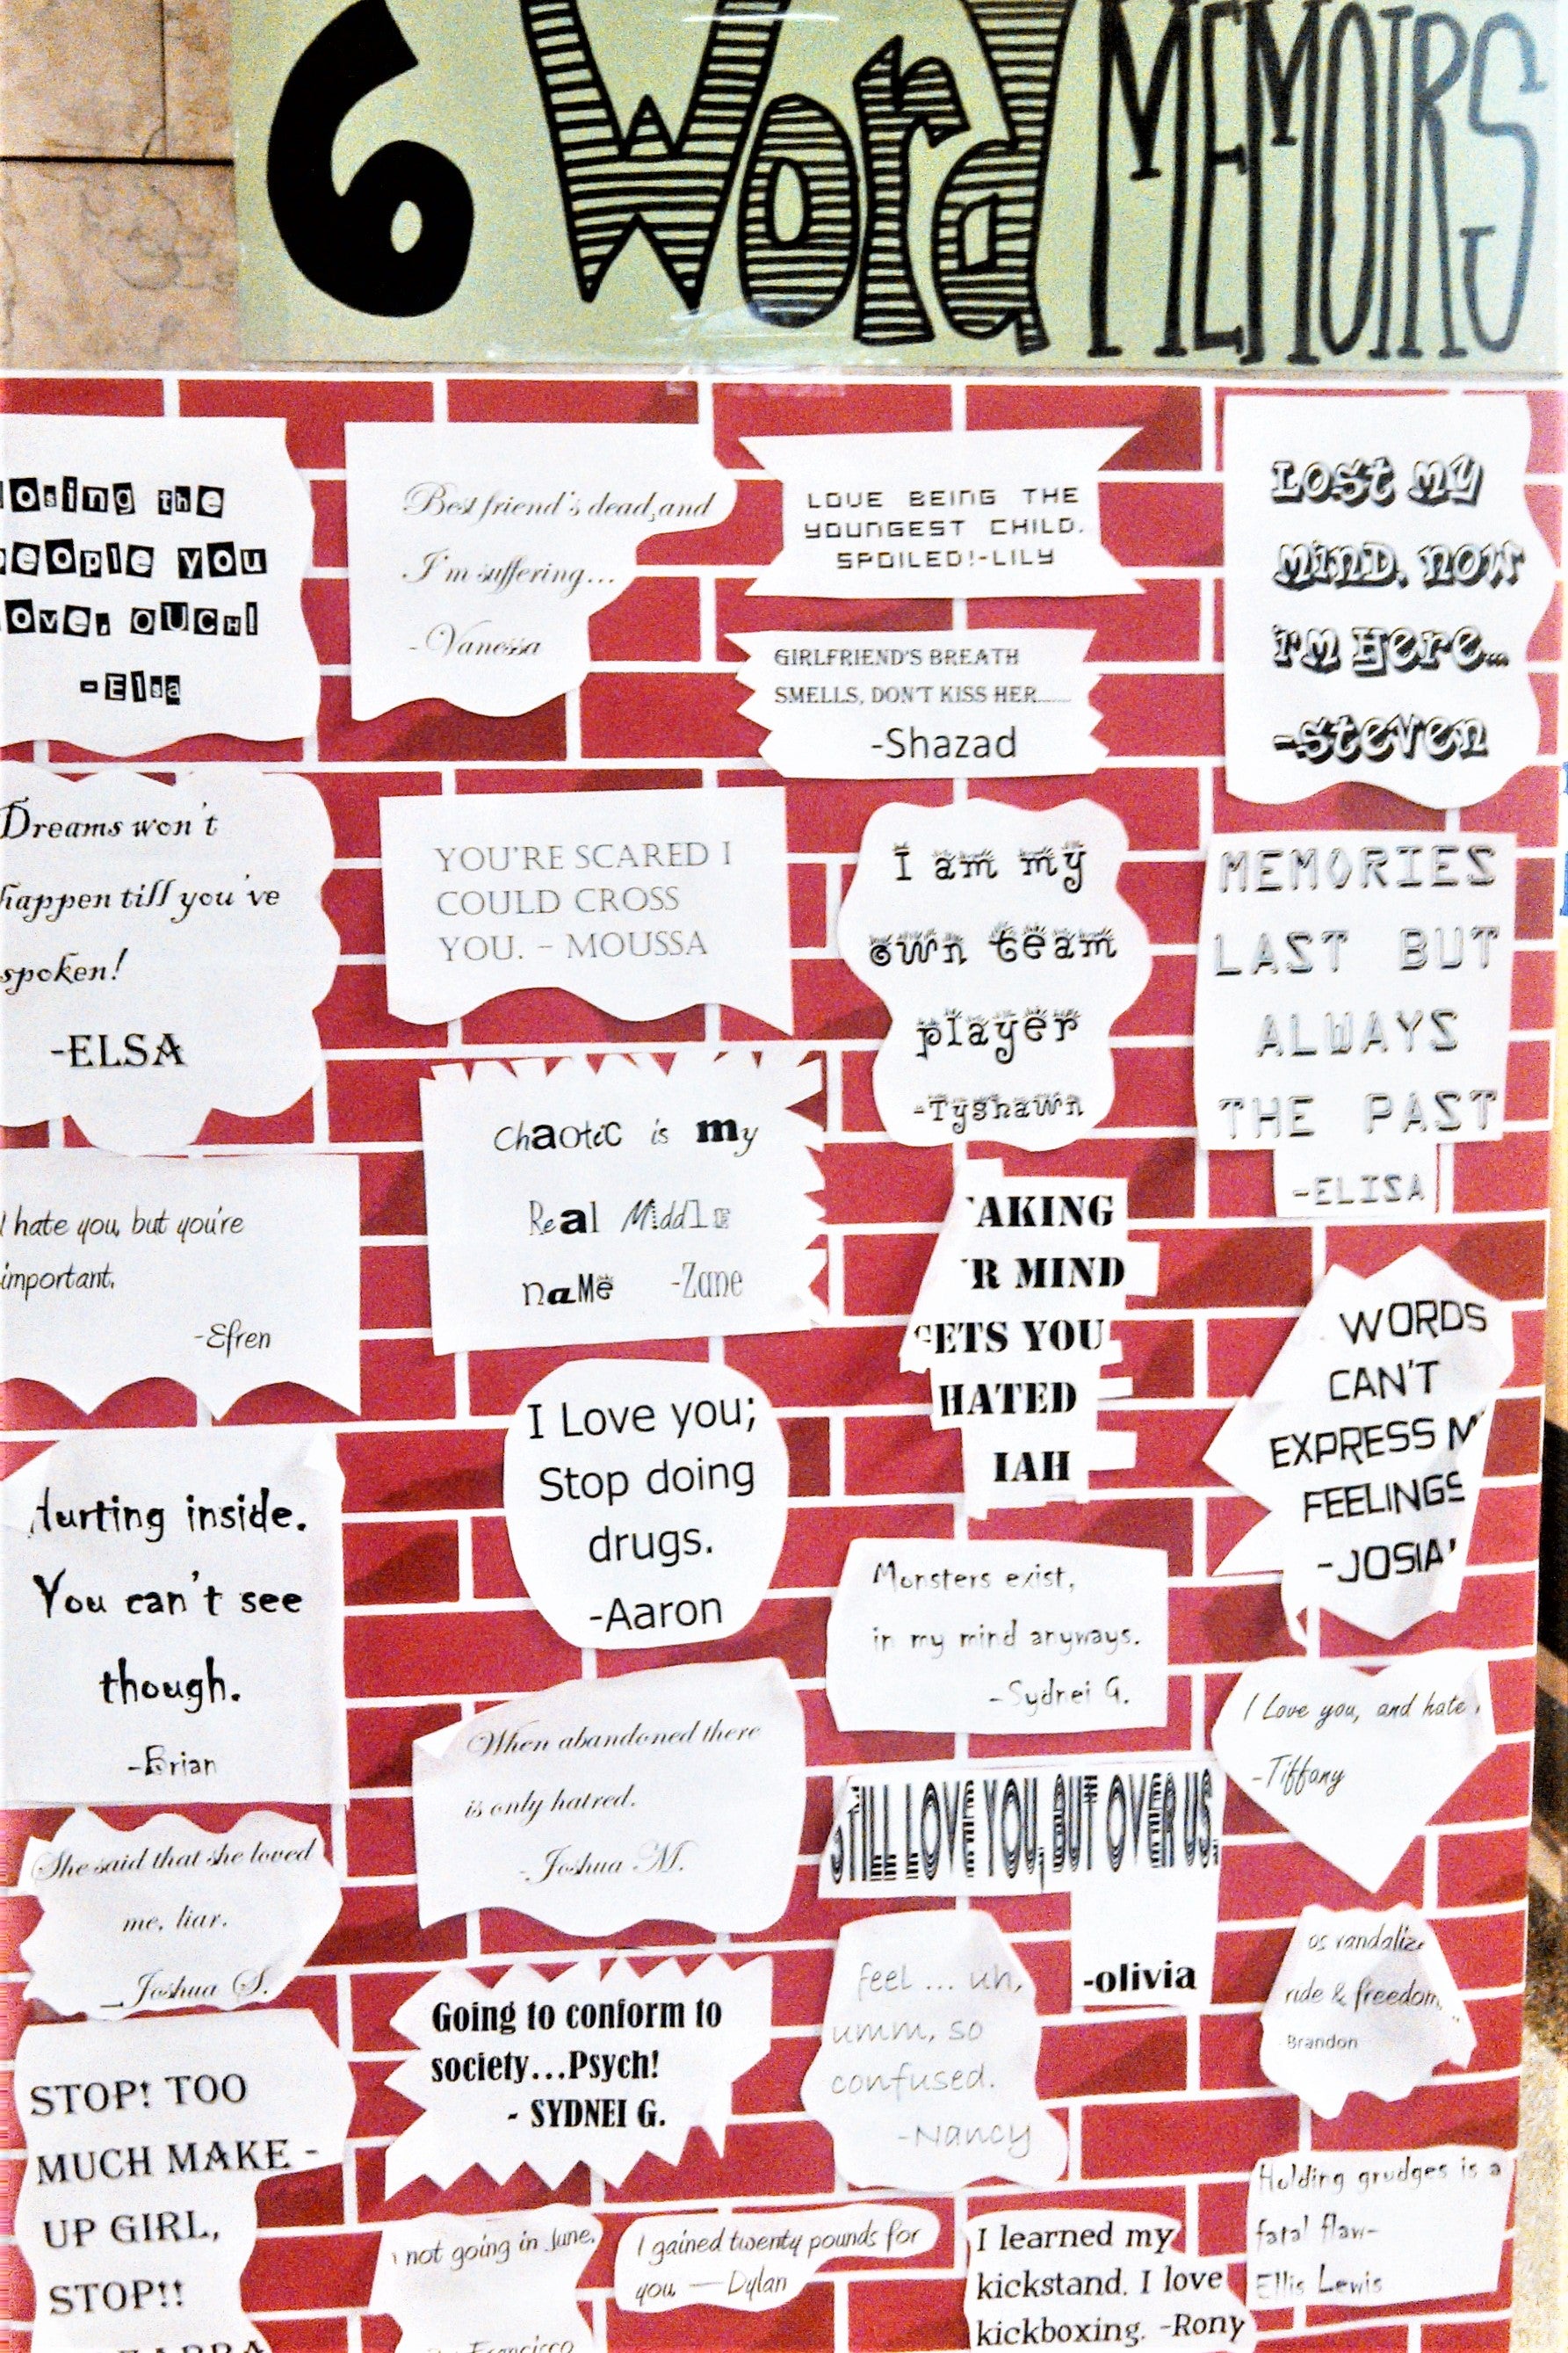 6 Word MEMOIRS
osing the
people you
ove, OUCH!
-Elsa
Best friend's dead, and
I'm suffering...
-Vanessa
LOVE BEING THE
YOUNGEST CHILD.
SPOILED!-LILY
GIRLFRIEND'S BREATH
SMELLS, DON'T KISS HER......
-Shazad
LOST MY
MIND. NOW
I'M HERE...
-STEVEN
Dreams won't
happen till you've
spoken!
-ELSA
YOU'RE SCARED I
COULD CROSS
YOU. – MOUSSA
I am my
own team
player
-Tyshawn
MEMORIES
LAST BUT
ALWAYS
THE PAST
-ELISA
Chaotic is my
Real Middle
naMe -Zane
AKING
R MIND
GETS YOU
HATED
IAH
I hate you, but you're
important.
-Efren
WORDS
CAN'T
EXPRESS M
FEELINGS
-JOSIA
I Love you;
Stop doing
drugs.
-Aaron
Hurting inside.
You can't see
though.
-Brian
Monsters exist,
in my mind anyways.
-Sydnei G.
When abandoned there
is only hatred.
-Joshua M.
I Love you, and hate
-Tiffany
STILL LOVE YOU, BUT OVER US.
-olivia
She said that she loved
me, liar.
_Joshua S.
Going to conform to
society...Psych!
- SYDNEI G.
feel ... uh,
umm, so
confused.
-Nancy
os vandalize
ride & freedom.
Brandon
STOP! TOO
MUCH MAKE -
UP GIRL,
STOP!!
not going in June.
Francisco
I gained twenty pounds for
you — Dylan
I learned my
kickstand. I love
kickboxing. -Rony
Holding grudges is a
fatal flaw-
Ellis Lewis